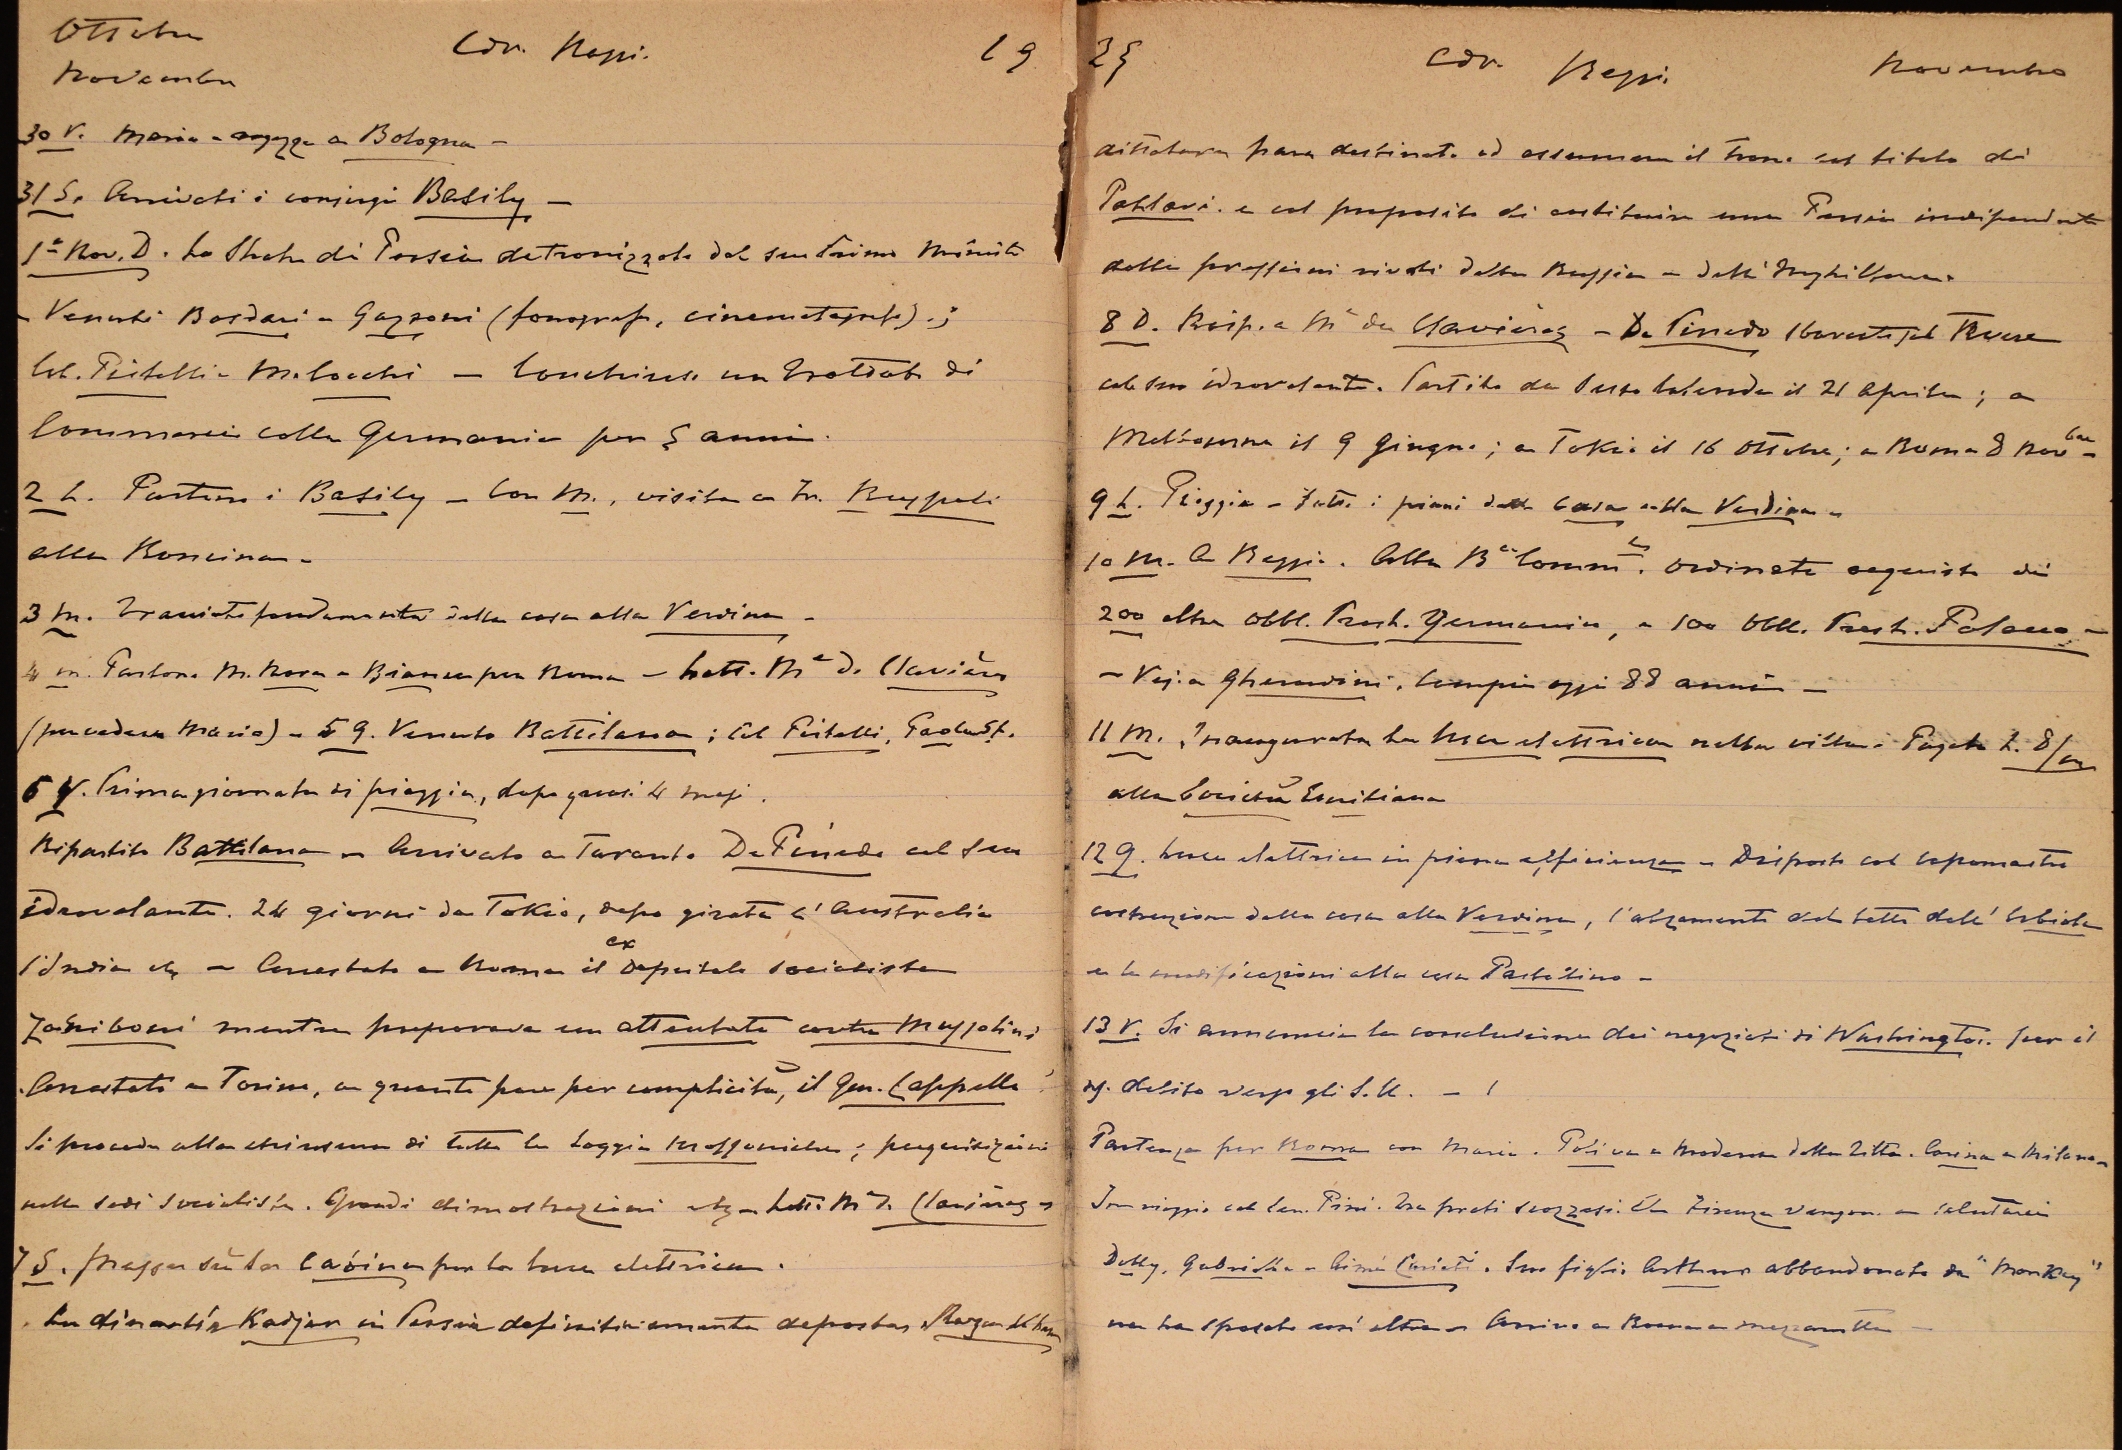 Ottobre
Novembre
Cdv. Reggi.
19
30 V. Maria e ragazze a Bologna –
31 S. Arrivati i coniugi Basily –
1° Nov. D. Lo Shah di Persia detronizzato dal suo Primo Ministro
– Venuti Bosdari e Gazzoni (fonografo, cinematografo).;
Col. Fistelli e Malocchi – Conchiuso un Trattato di
Commercio colla Germania per 5 anni.
2 L. Partono i Basily – Con M., visita a Fr. Ruspoli
alla Roncina –
3 M. Tracciate fondamenta della casa alla Verdina –
4 M. Partono M. Rosa e Bianca per Roma – Lett. Me de Clavièra
(precedere Maria) – 5 G. Venuto Battilana; Col Fistelli, Paolo St.
6 V. Prima giornata di pioggia, dopo quasi 4 mesi.
Ripartito Battilana – Arrivato a Taranto De Pinedo col suo
idrovolante. 24 giorni da Tokio, dopo girata l'Australia
l'India etc – Arrestato a Roma il ex Deputato socialista
Zaniboni mentre preparava un attentato contro Mussolini
Arrestato a Torino, a quanto pare per complicità, il Gen. Cappello
Si procede alla chiusura di tutte le Loggie Massoniche; perquisizioni
nelle sedi socialiste. Grandi dimostrazioni etc – Lett. Me de Clavièra –
7 S. Messa sù la cabina per la luce elettrica.
La dinastia Kadjar in Persia definitivamente deposta. Reza Khan
25
Cdv. Reggi.
Novembre
dittatore pare destinato ad assumere il trono col titolo di
Pahlavi. e col proposito di costituire una Persia indipendente
dalle pressioni rivali della Russia e dell'Inghilterra.
8 D. Risp. a Me de Clavièra – De Pinedo sul Tevere
col suo idrovolante. Partito da Sesto Calende il 21 Aprile; a
Melbourne il 9 Giugno; a Tokio il 16 Ottobre; a Roma 8 Novbre –
9 L. Pioggia – Fatti i piani della casa alla Verdina –
10 M. A Reggio. Alla Bca Comm.le ordinato acquisto di
200 altre Obbl. Prest. Germania, e 100 Obbl. Prest. Polacco –
– Vis. a Gherardini. Compie oggi 88 anni –
11 M. Inaugurata la luce elettrica nella villa. Pagate L. 8/m
alla Società Emiliana
12 G. Luce elettrica in piena efficienza – Disposto col capomastro
costruzione della casa alla Verdina, l'alzamento del tetto dell'
e le modificazioni alla casa Pastolino –
13 V. Si annuncia la conclusione dei negoziati di Washington per il
ns. debito verso gli S.U. – !
Partenza per Roma con Maria. a Modena della Titta. Corina a Milano –
In viaggio col Sen. Pini. Tra preti scozzesi. A Firenze vengono a salutarci
Dolly, Gabriella e Aimé Cariati. Suo figlio Arthur abbandonato da "Monkey"
ne ha sposato così altra – Arrivo a Roma a mezzanotte –